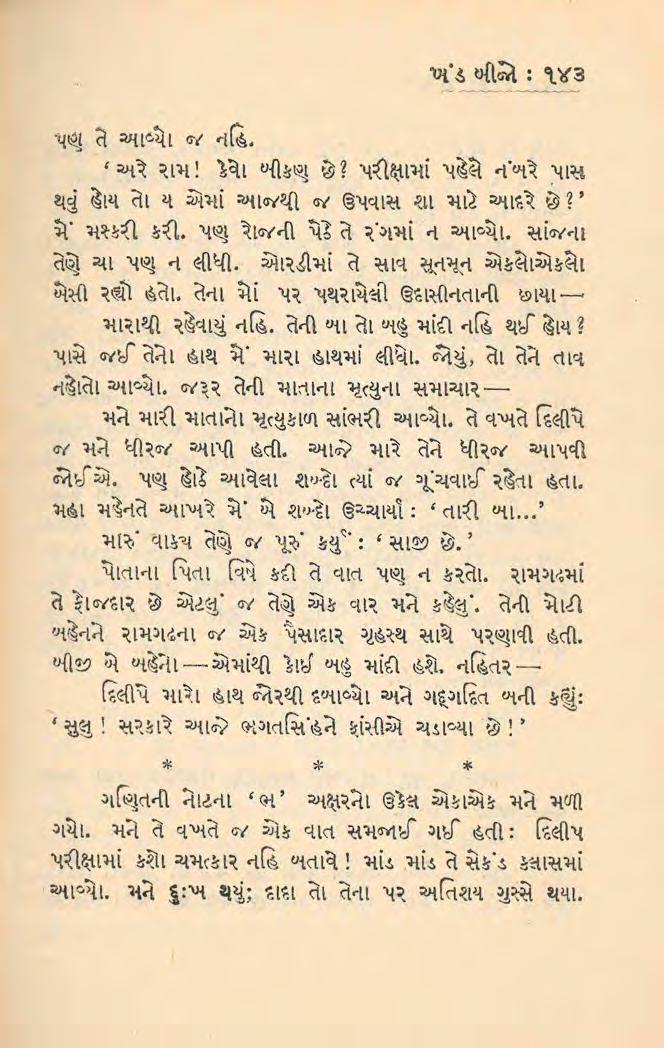 ખંડ બીજો : ૧૪૩
પણ તે આવ્યો જ નહિ.
‘ અરે રામ! કેવો બીકણ છે? પરીક્ષામાં પહેલે નંબરે પાસ
થવું હોય તો ય એમાં આજથી જ ઉપવાસ શા માટે આદરે છે?’
મેં મશ્કરી કરી. પણ રોજની પેઠે તે રંગમાં ન આવ્યો. સાંજના
તેણે ચા પણ ન લીધી. ઓરડીમાં તે સાવ સૂનમૂન એકલોએકલો
બેસી રહ્યો હતો. તેના મોં પર પથરાયેલી ઉદાસીનતાની છાયા—
મારાથી રહેવાયું નહિ. તેની બા તો બહુ માંદી નહિ થઈ હોય?
પાસે જઈ તેનો હાથ મેં મારા હાથમાં લીધો. જોયું, તો તેને તાવ
નહોતો આવ્યો. જરૂર તેની માતાના મૃત્યુના સમાચાર—
મને મારી માતાનો મૃત્યુકાળ સાંભરી આવ્યો. તે વખતે દિલીપે
જ મને ધીરજ આપી હતી. આજે મારે તેને ધીરજ આપવી
જોઈએ. પણ હોઠે આવેલા શબ્દો ત્યાં જ ગૂંચવાઈ રહેતા હતા.
મહા મહેનતે આખરે મેં બે શબ્દો ઉચ્ચાર્યા : ‘ તારી બા...’
મારું વાક્ય તેણે જ પૂરું કર્યું : ‘ સાજી છે.’
પોતાના પિતા વિષે કદી તે વાત પણ ન કરતો. રામગઢમાં
તે ફોજદાર છે એટલું જ તેણે એક વાર મને કહેલું. તેની મોટી
બહેનને રામગઢના જ એક પૈસાદાર ગૃહસ્થ સાથે પરણાવી હતી.
બીજી બે બહેનો—એમાંથી કોઈ બહુ માંદી હશે. નહિતર—
દિલીપે મારો હાથ જોરથી દબાવ્યો અને ગદ્દગદિત બની કહ્યું:
‘ સુલુ ! સરકારે આજે ભગતસિંહને ફાંસીએ ચડાવ્યા છે !’
* * *
ગણિતની નોટના ‘ભ’ અક્ષરનો ઉકેલ એકાએક મને મળી
ગયો. મને તે વખતે જ એક વાત સમજાઈ ગઈ હતી : દિલીપ
પરીક્ષામાં કશો ચમત્કાર નહિ બતાવે ! માંડ માંડ તે સેકંડ ક્લાસમાં
આવ્યો. મને દુઃખ થયું; દાદા તો તેના પર અતિશય ગુસ્સે થયા.